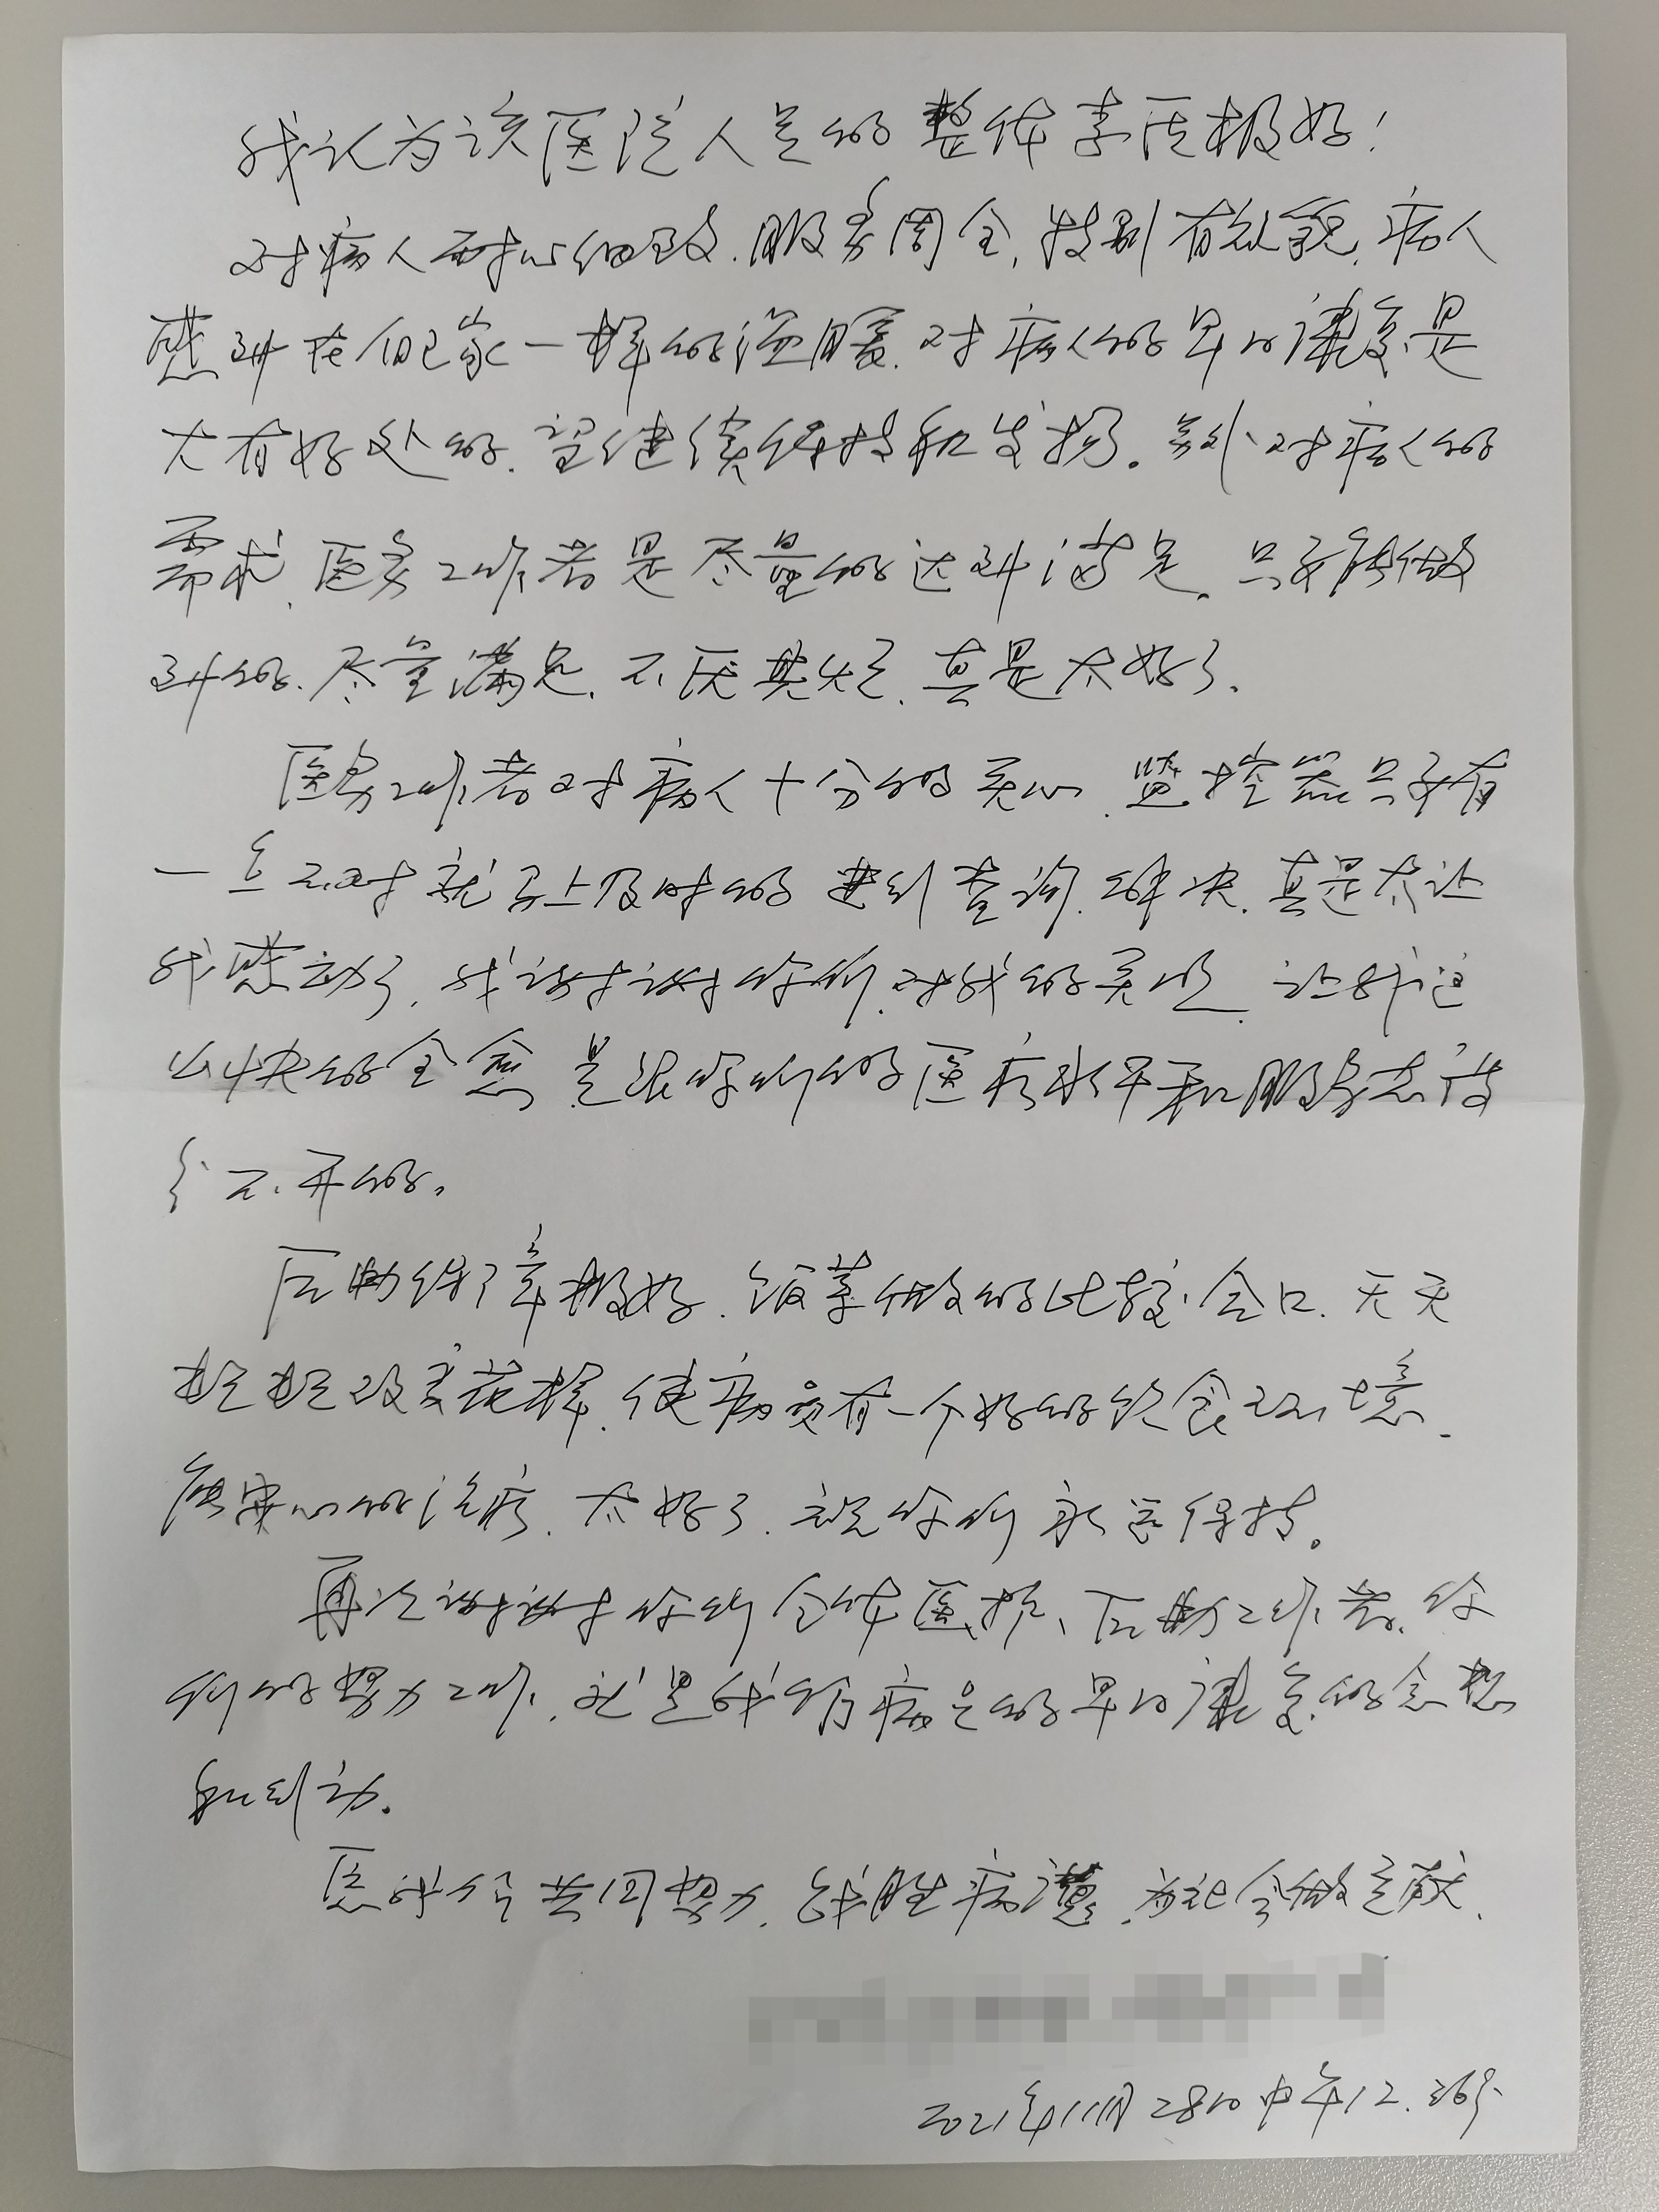 我认为该医院人员的整体素质极好！
对病人耐心细致.服务周全,特别有礼貌,病人
感到在自己家一样的温暖.对病人的早日康复是
大有好处的.望继续保持和发扬。另外对病人的
需求,医务工作者是尽量的达到满足.只要能做
到的.尽量满足,不厌其烦,真是太好了.
医务工作者对病人十分的关心,监控器只要有
一点不对就马上及时的进行查询.解决.真是太让
我感动了,我谢谢你们.对我的关心,让我这
么快的全愈,是跟你们的医疗水平和服务态度
分不开的。
后勤保障极好,饭菜做的比较合口.天天
换改变花样,使病员有一个好的饮食环境.
安心的治疗,太好了.祝你们永远保持。
再次谢谢你们全体医护、后勤工作者.你
们的努力工作,就是我们病员的早日康复的念想
和行动。
愿我们共同努力,战胜病魔,为社会做贡献.
2021年11月28日中午12.36分